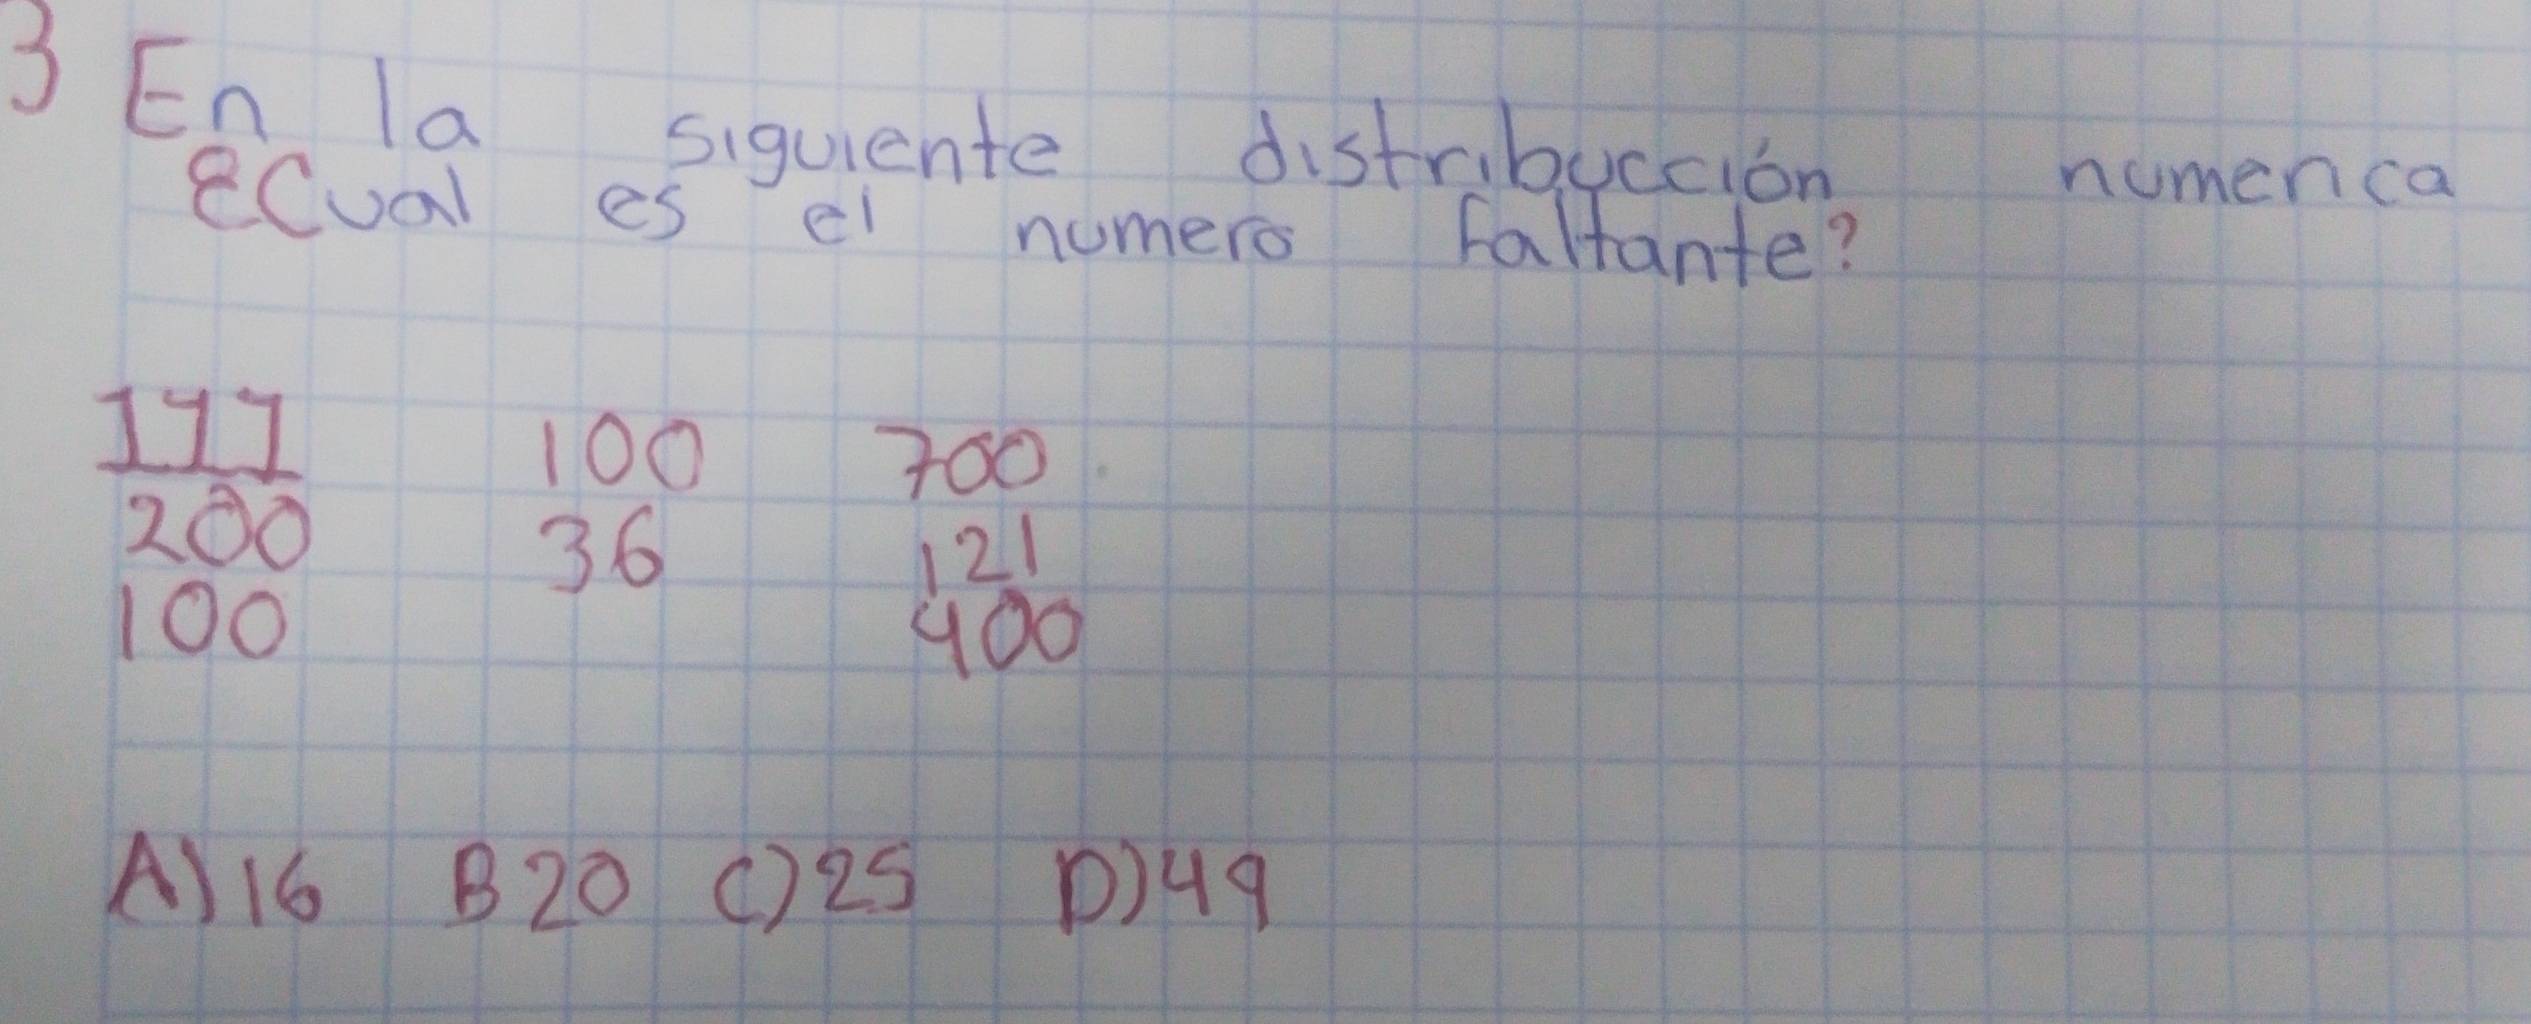 3 En la siguiente distribucción numerica
¿Cual es el numero faltante?
111 100 700
200 36 121
100 400
A) 16 B 20 C) 25 D) 49